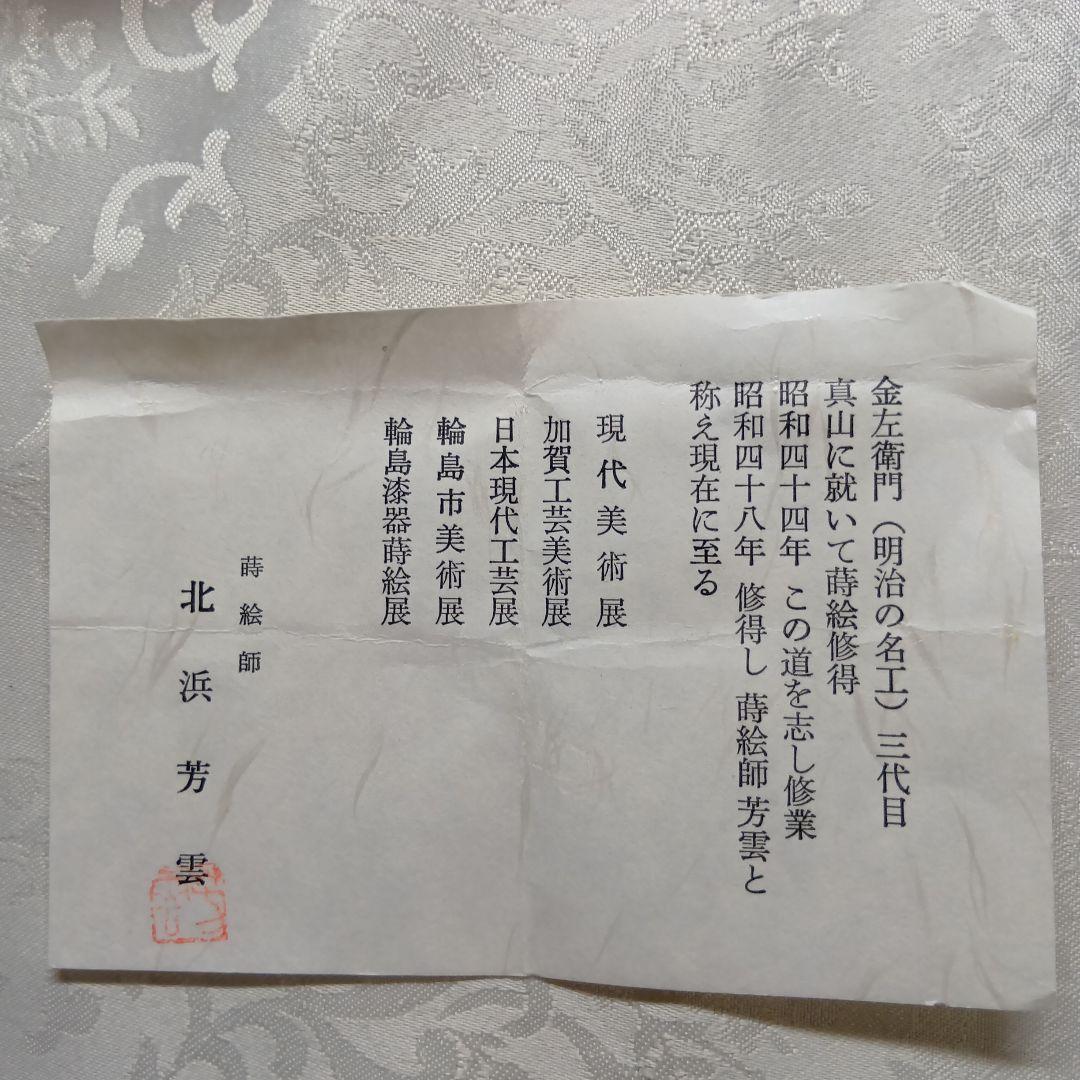 金左衛門（明治の名工）三代目
真山に就いて蒔絵修得
昭和四十四年 この道を志し修業
昭和四十八年 修得し 蒔絵師芳雲と
称え現在に至る
現代美術展
加賀工芸美術展
日本現代工芸展
輪島市美術展
輪島漆器蒔絵展
蒔絵師
北浜芳雲